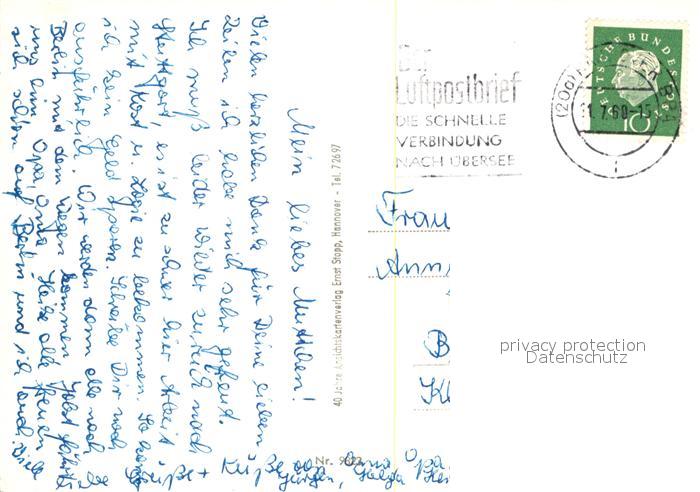 Mein liebes Muttchen!
Vielen herzlichen Dank für Deine lieben
Zeilen ich habe mich sehr gefreut.
Ich muß leider wieder zurück nach
Stuttgart, es ist zu schwer hier Arbeit
mit Kost u. Logie zu bekommen. So kann
ich kein Geld sparen. Schreibe Dir noch
ausführlich. Wir werden dann alle nach
Berlin mit dem Wagen kommen Jobst fährt
uns beim Opa, Oma Heike alle freuen
sich schon auf Berlin und ich auch. Viele
Grüße + Küße von Oma Opa
Jürgen, Helga
40 Jahre Ansichtskartenverlag Ernst Stopp, Hannover - Tel. 7 26 97
Nr.
Der
Luftpostbrief
DIE SCHNELLE
VERBINDUNG
NACH ÜBERSEE
DEUTSCHE BUNDESPOST
10
(20a)
1.7.60-15
Frau
Ann
B
Kl
privacy protection
Datenschutz